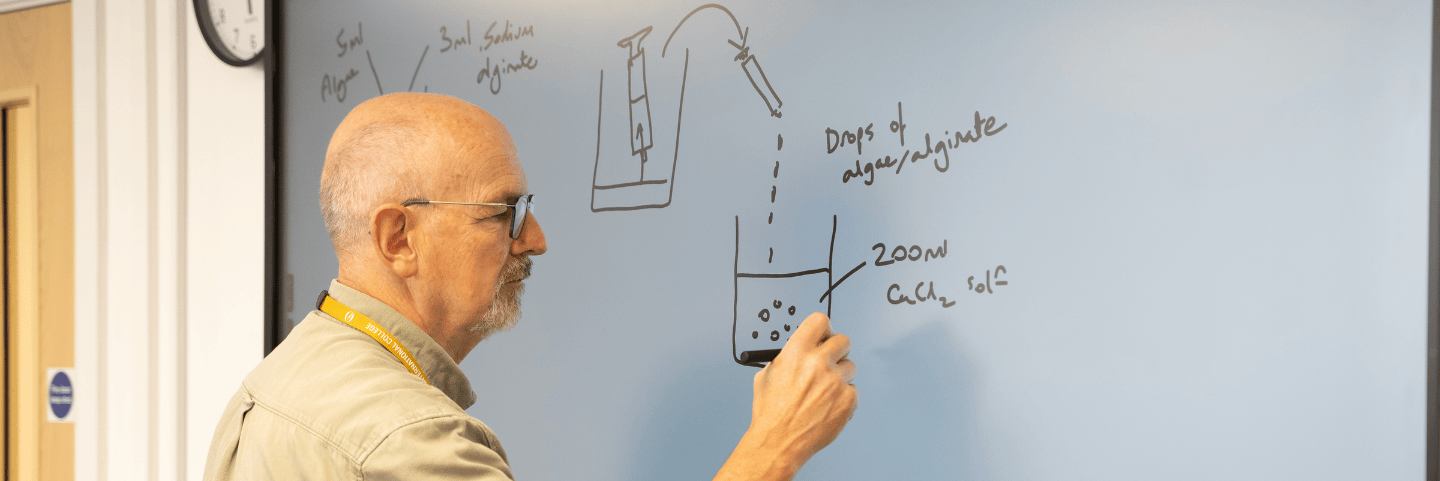 5ml
Algae
3ml Sodium
alginate
Drops of
algae/alginate
200ml
CaCl₂ solⁿ
INTERNATIONAL COLLEGE